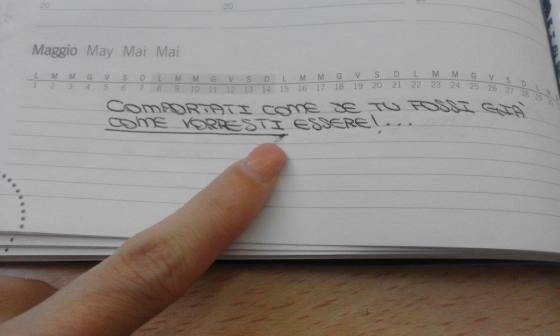 20 20 22
Maggio May Mai Mai
L M M G V S D L M M G V S D L M M G V S D L M M G V S D L
1 2 3 4 5 6 7 8 9 10 11 12 13 14 15 16 17 18 19 20 21 22 23 24 25 26 27 28
COMPORTATI COME SE TU FOSSI GIÀ
COME VORRESTI ESSERE!...